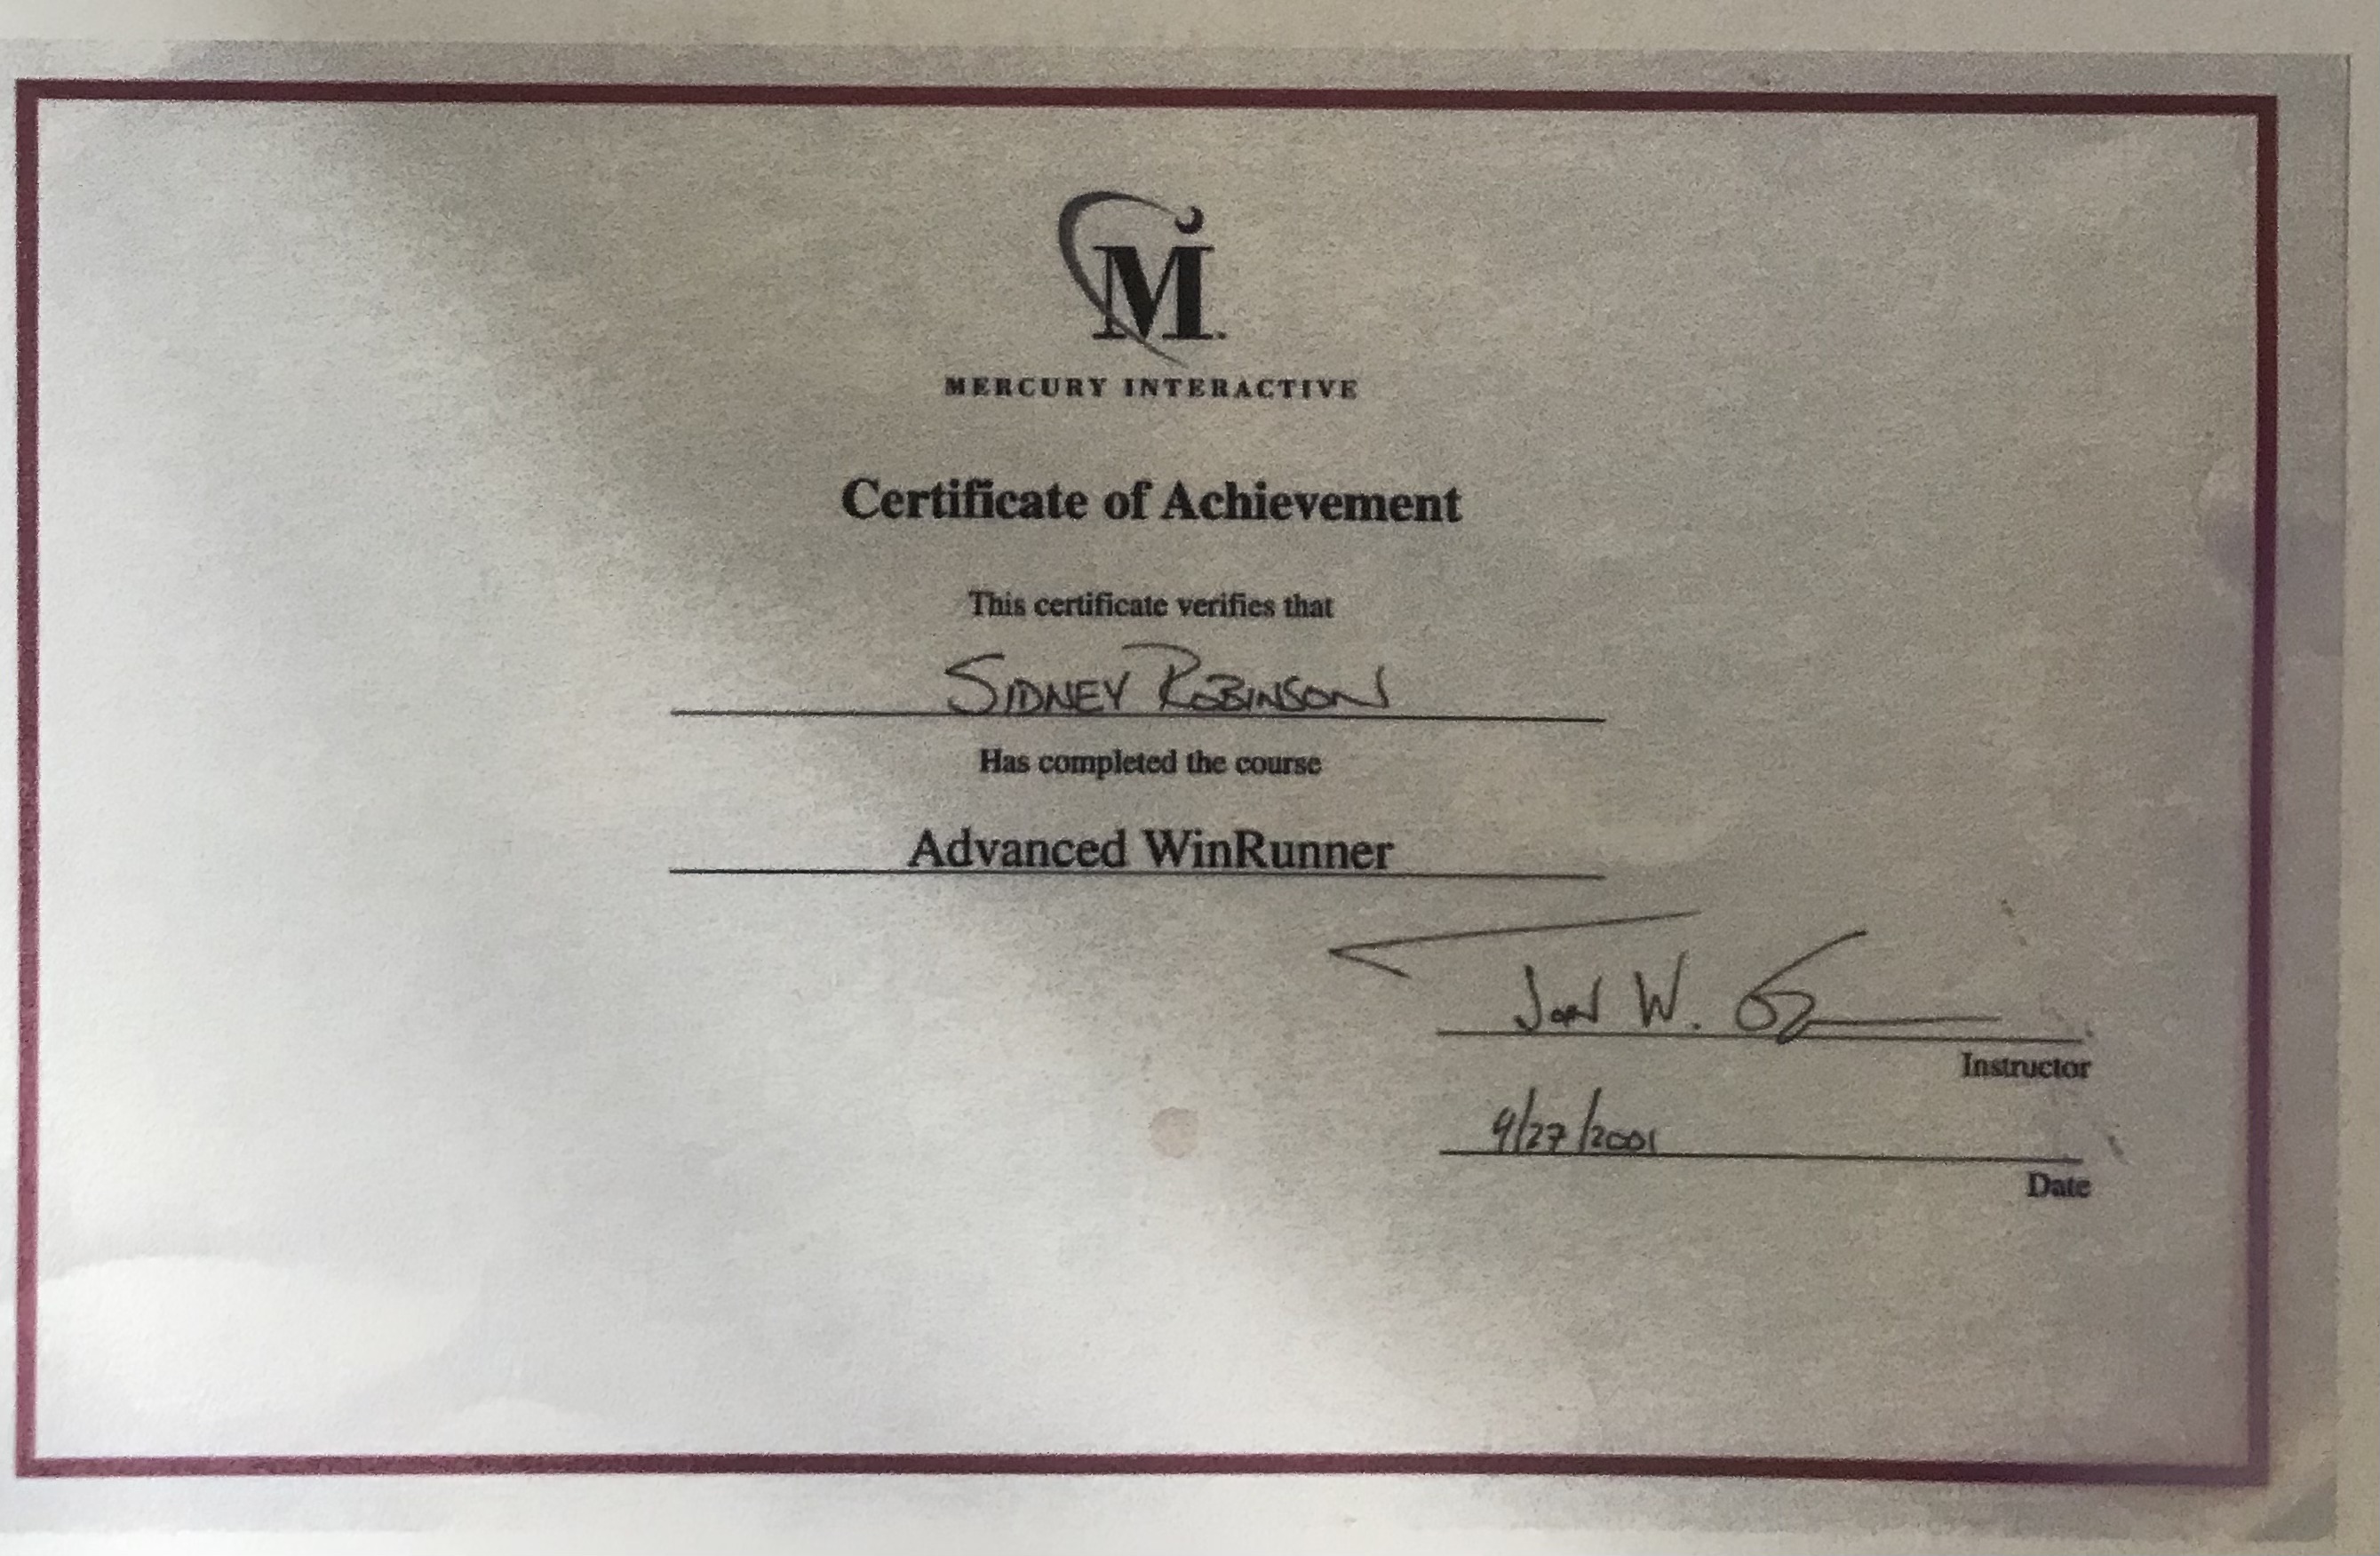 M
MERCURY INTERACTIVE
Certificate of Achievement
This certificate verifies that
SIDNEY ROBINSON
Has completed the course
Advanced WinRunner
Jon W.
Instructor
4/27/2001
Date